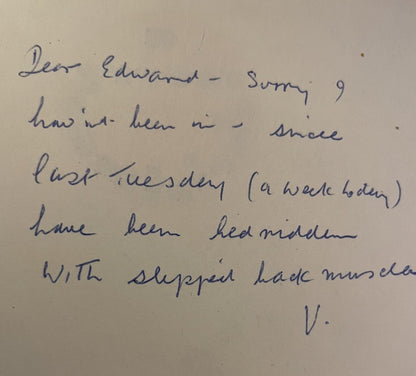 Dear Edward - Sorry I
hav'nt been in - since
last Tuesday (a week today)
have been bedridden
with slipped back muscle
V.